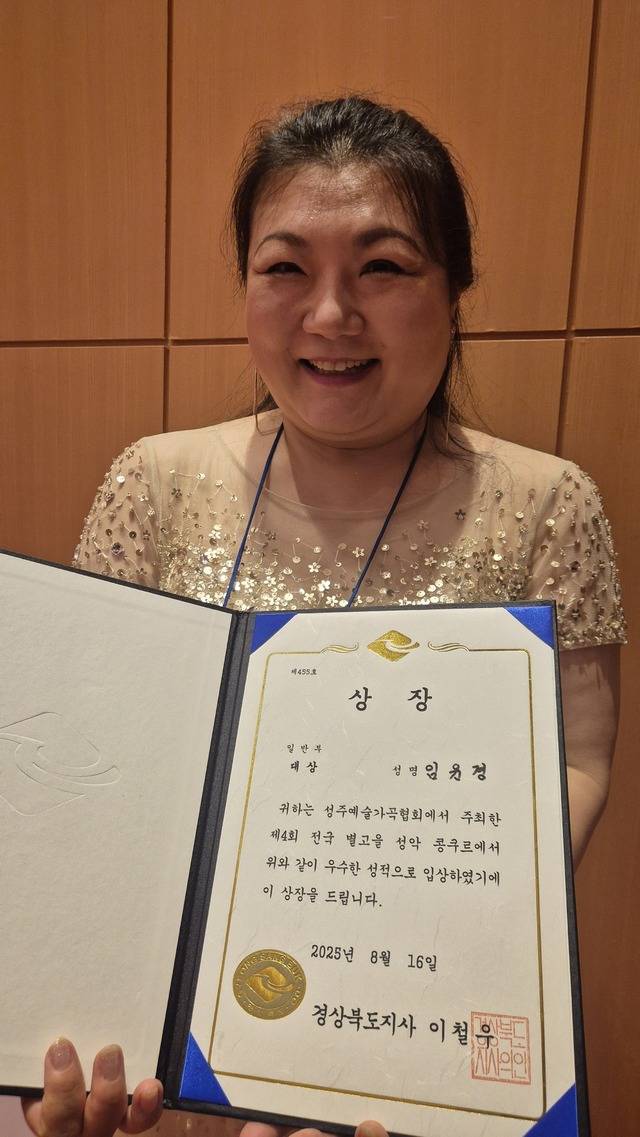 제455호
상 장
일반부
대상 성명 임윤경
귀하는 성주예술가곡협회에서 주최한
제4회 전국 별고을 성악 콩쿠르에서
위와 같이 우수한 성적으로 입상하였기에
이 상장을 드립니다.
2025년 8월 16일
경상북도지사 이철우
경상북도
지사의인